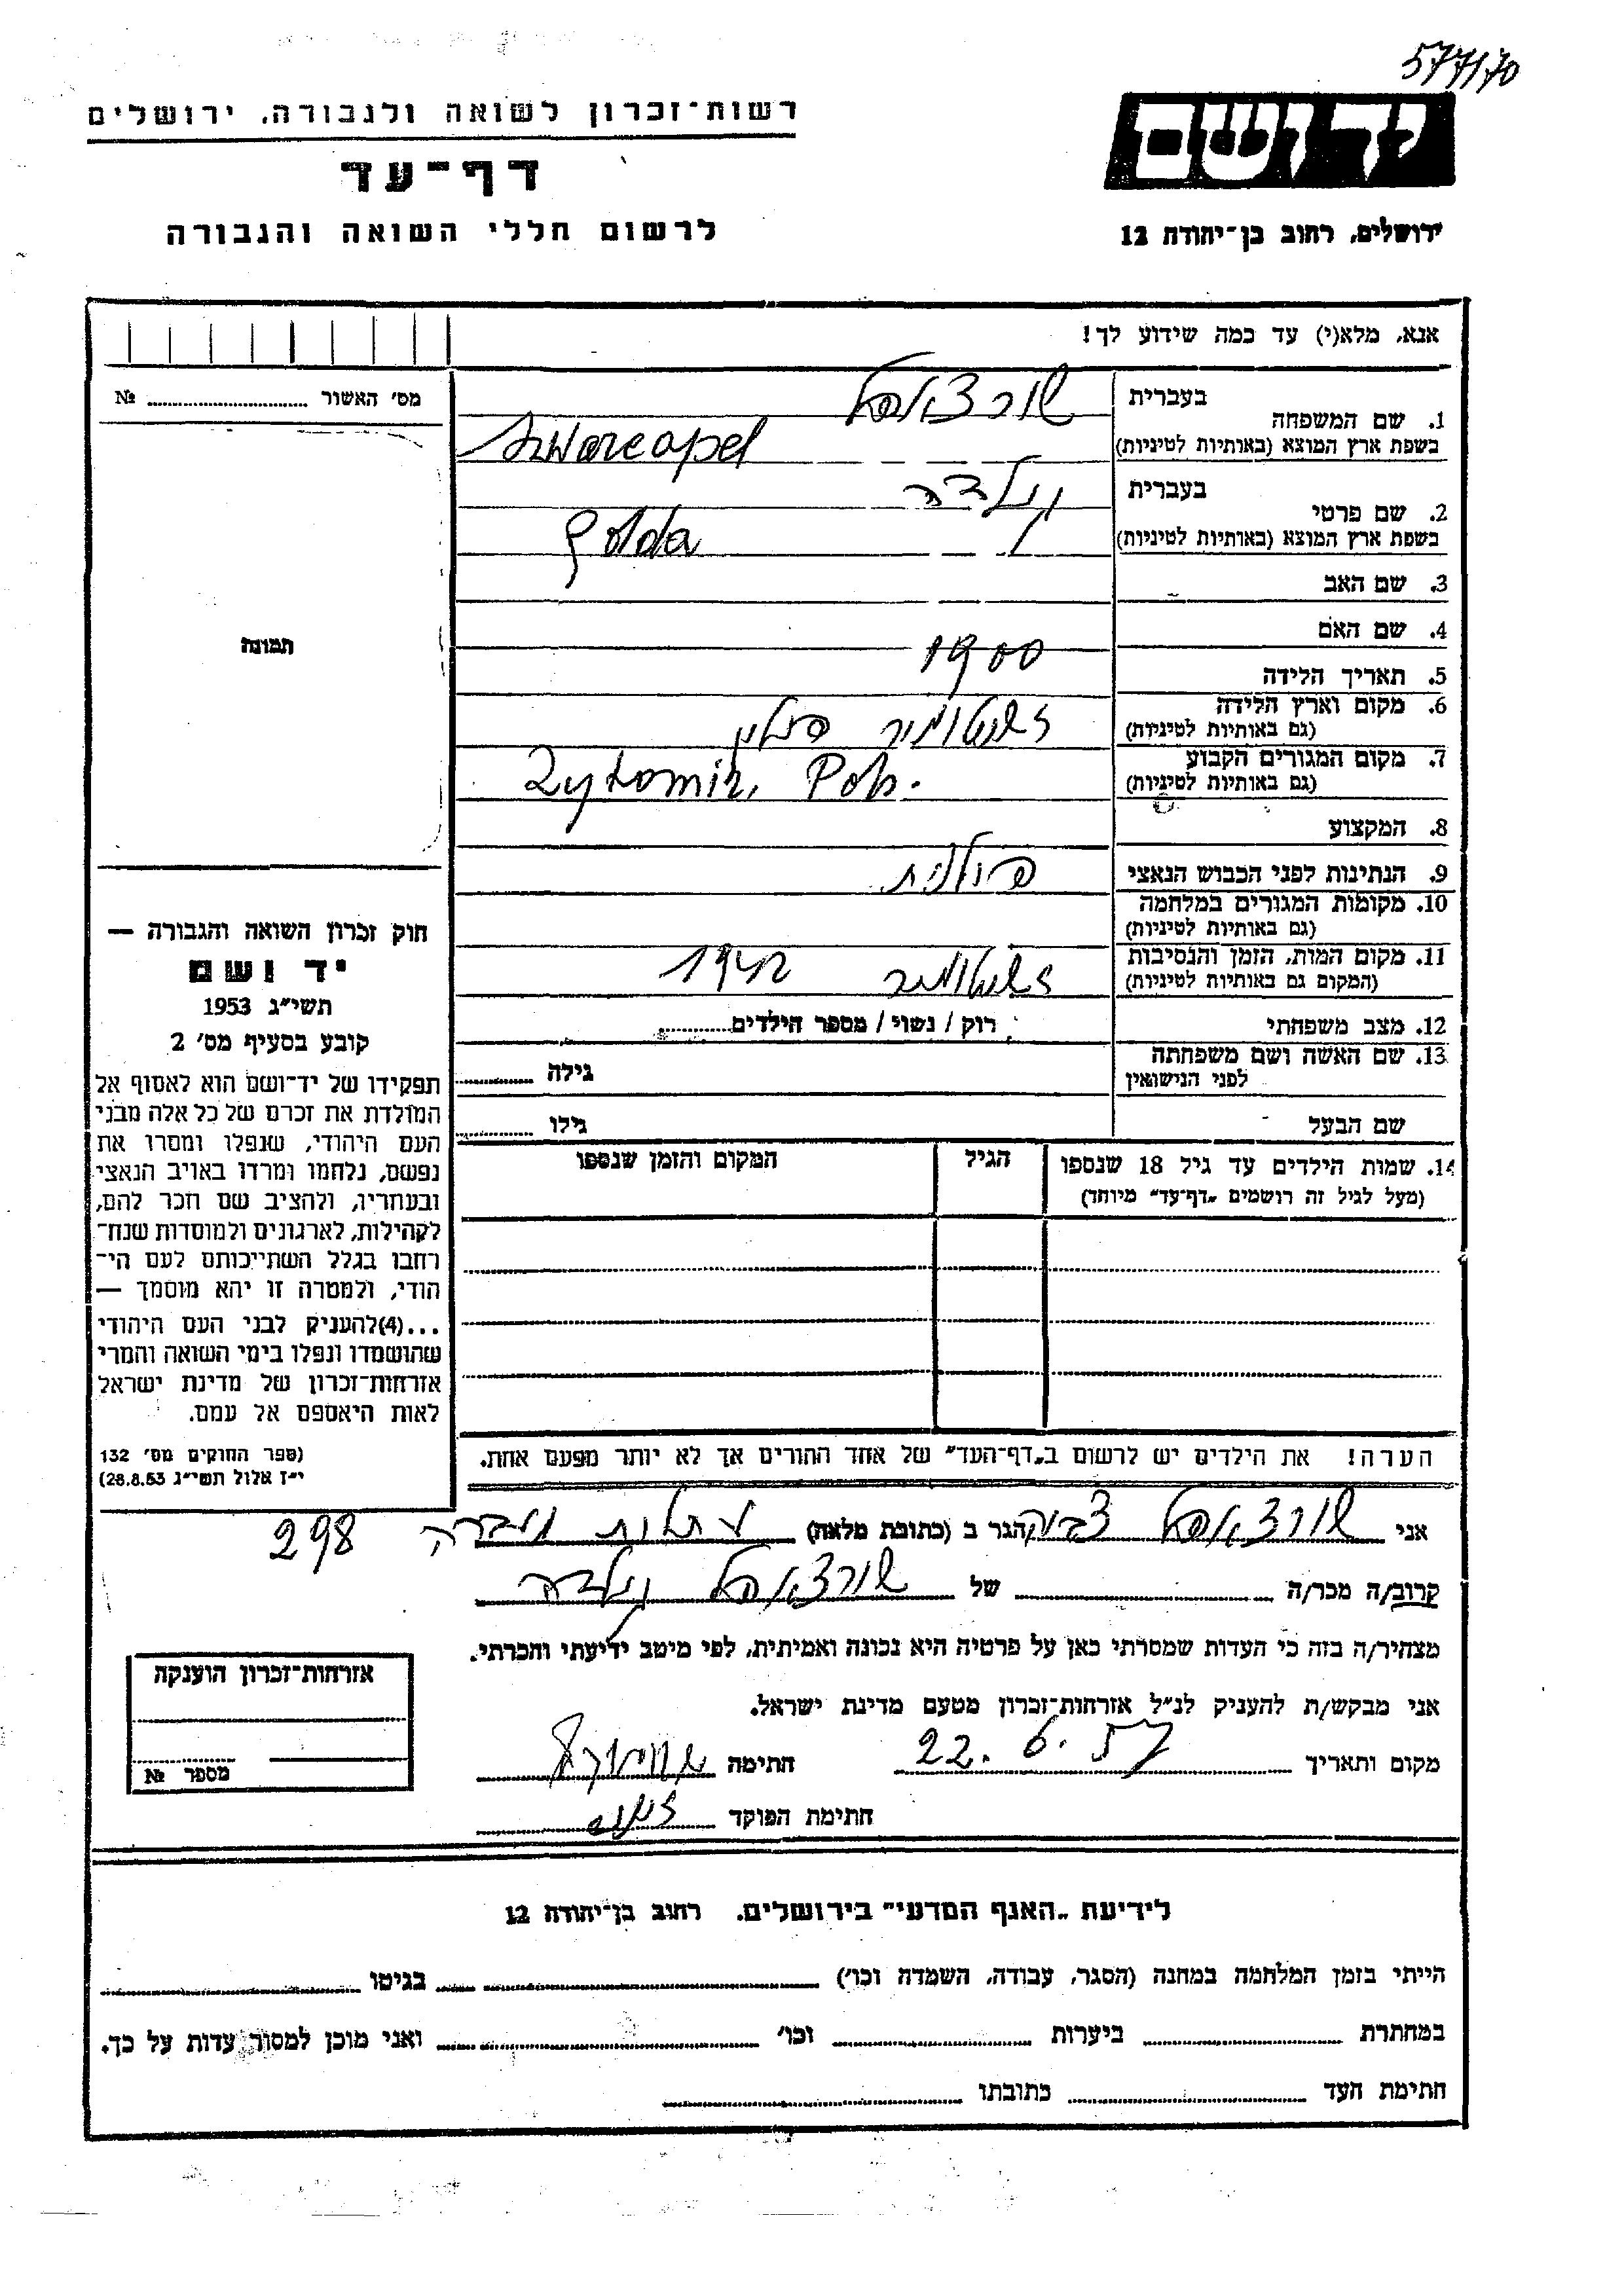 577/70
יד ושם
רשות-זכרון לשואה ולגבורה, ירושלים
דף-עד
ירושלים, רחוב בן-יהודה 12
לרשום חללי השואה והגבורה
אנא, מלא(י) עד כמה שידוע לך!
מס׳ האשור № 
1. שם המשפחה
בעברית שורצאפל
בשפת ארץ המוצא (באותיות לטיניות) Szwarcapel
2. שם פרטי
בעברית גולדה
בשפת ארץ המוצא (באותיות לטיניות) Golda
3. שם האב
4. שם האם
תמונה
5. תאריך הלידה 1900
6. מקום וארץ הלידה
(גם באותיות לטיניות) ז'יטומיר פולין
7. מקום המגורים הקבוע
(גם באותיות לטיניות) Zytomir, Pol.
8. המקצוע
9. הנתינות לפני הכבוש הנאצי פולנית
10. מקומות המגורים במלחמה
(גם באותיות לטיניות)
11. מקום המות, הזמן והנסיבות
(המקום גם באותיות לטיניות) ז'יטומיר 1942
12. מצב משפחתי רוק / נשוי / מספר הילדים
13. שם האשה ושם משפחתה
לפני הנישואין גילה
שם הבעל גילו
14. שמות הילדים עד גיל 18 שנספו הגיל המקום והזמן שנספו
(מעל לגיל זה רושמים „דף-עד" מיוחד)
חוק זכרון השואה והגבורה —
יד ושם
תשי״ג 1953
קובע בסעיף מס׳ 2
תפקידו של יד-ושם הוא לאסוף אל
המולדת את זכרם של כל אלה מבני
העם היהודי, שנפלו ומסרו את
נפשם, נלחמו ומרדו באויב הנאצי
ובעוזריו, ולהציב שם וזכר להם,
לקהילות, לארגונים ולמוסדות שנח-
רחבו בגלל השתייכותם לעם הי-
הודי, ולמטרה זו יהא מוסמך —
...(4)להעניק לבני העם היהודי
שהושמדו ונפלו בימי השואה והמרי
אזרחות-זכרון של מדינת ישראל
לאות היאספם אל עמם.
(ספר החוקים מס׳ 132
י״ז אלול תשי״ג 28.8.53)
הערה! את הילדים יש לרשום ב„דף-העד" של אחד ההורים אך לא יותר מפעם אחת.
אני שורצאפל הגר ב (כתובת מלאה) 298
קרוב/ה מכר/ה של שורצאפל גולדה
מצהיר/ה בזה כי העדות שמסרתי כאן על פרטיה היא נכונה ואמיתית, לפי מיטב ידיעתי והכרתי.
אני מבקש/ת להעניק לנ״ל אזרחות-זכרון מטעם מדינת ישראל.
מקום ותאריך 22.6.57 חתימה
חתימת הפוקד
אזרחות-זכרון הוענקה
מספר №
לידיעת „האגף המדעי" בירושלים, רחוב בן-יהודה 12
הייתי בזמן המלחמה במחנה (הסגר, עבודה, השמדה וכו׳) בגיטו
במחתרת ביערות וכו׳ ואני מוכן למסור עדות על כך.
חתימת העד כתובתו